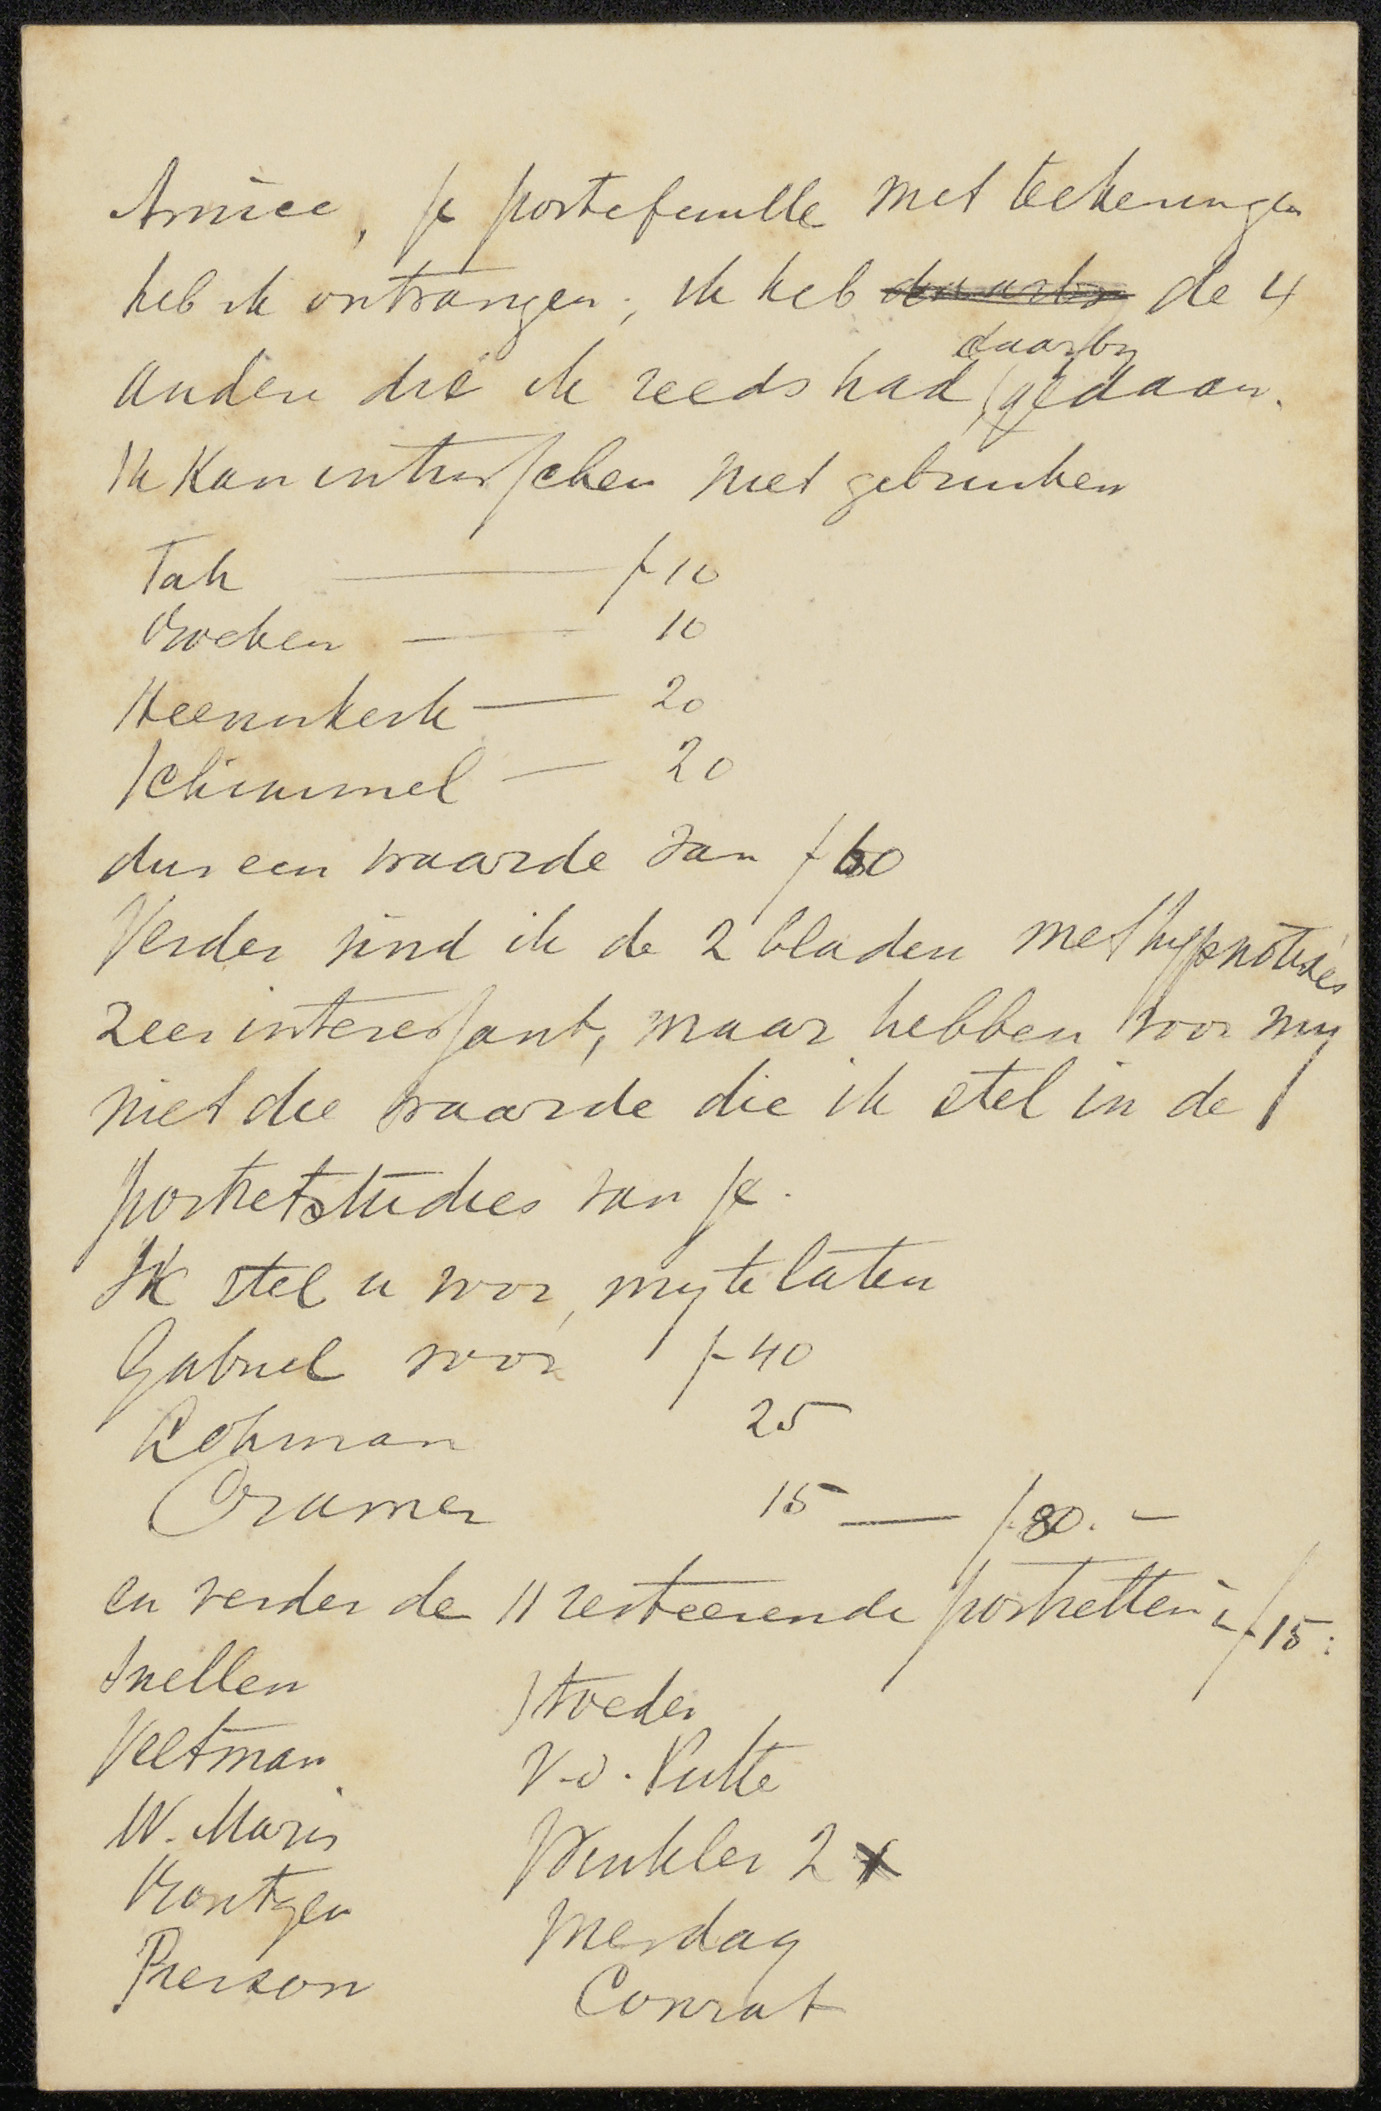 Amice, je portefeuille met teekeningen
heb ik ontvangen; ik heb daarby de 4
daarby
andere die ik reeds had, gedaan.
Ik kan intusschen niet gebruiken
Tak — f 10
Broeken — 10
Heemskerk — 20
Schimmel — 20
dus een waarde van f 60
Verder vind ik de 2 bladen met hypnotisées
zeer interessant, maar hebben voor my
niet die waarde die ik stel in de
portretstudies van je.
Ik stel u voor, my te laten
Gabriel voor f 40
Lohman 25
Cramer 15 — f. 80. –
en verder de 11 resteerende portretten à f 15:
Snellen Stoeder
Veltman V. d. Putte
W. Maris Winkler 2 x
Röntgen Mesdag
Pierson Conrat